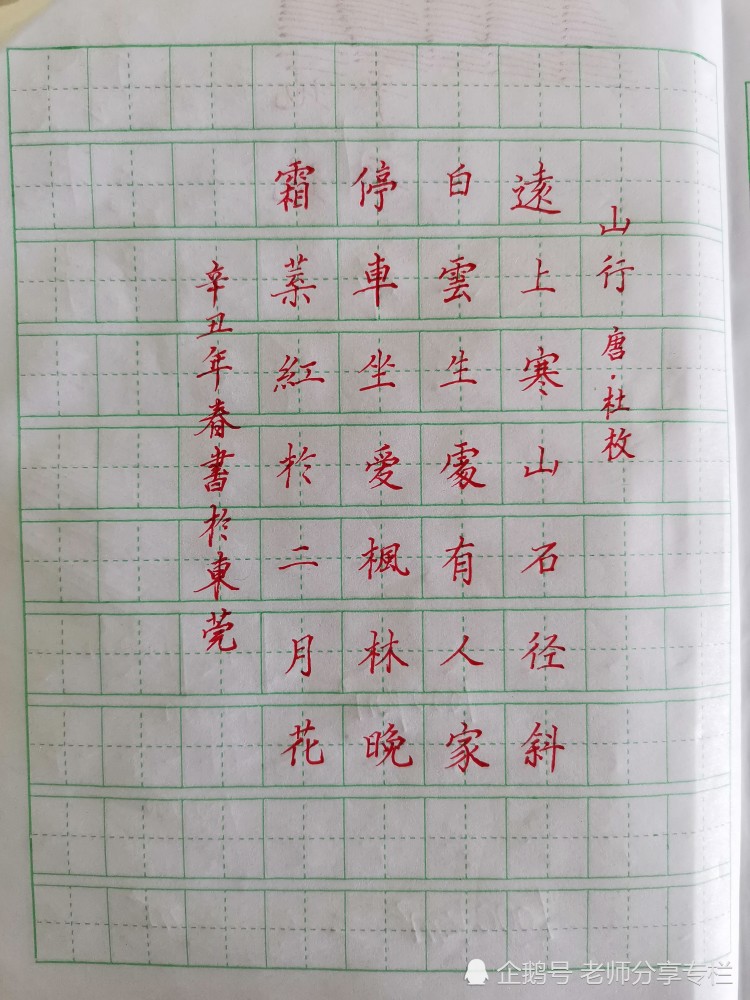 山行 唐·杜牧
遠上寒山石径斜
白雲生處有人家
停車坐愛楓林晚
霜葉紅於二月花
辛丑年春書於東莞
企鹅号 老师分享专栏